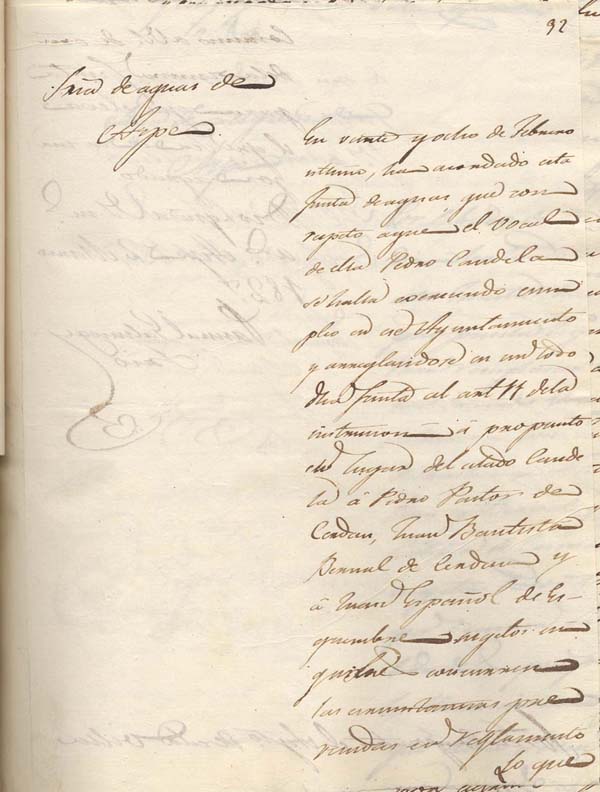 92
Junta de aguas de
Aspe
En vente y ocho de Febrero
ultimo, ha acordado esta
Junta de aguas que con
respeto aque el Vocal
de ella Pedro Candela
se halla egerciendo em
pleo en ese Ayuntamiento
y arreglandose en un todo
dha Junta al art 11 de la
instruccion á propuesto
en lugar del citado Cande
la á Pedro Pastor de
Cerdan, Juan Bautista
Bernal de Cerdan y
á Juan Español de Es-
quembre sugetos en
quienes concurren
las circunstancias pre
venidas en Reglamento
Lo que